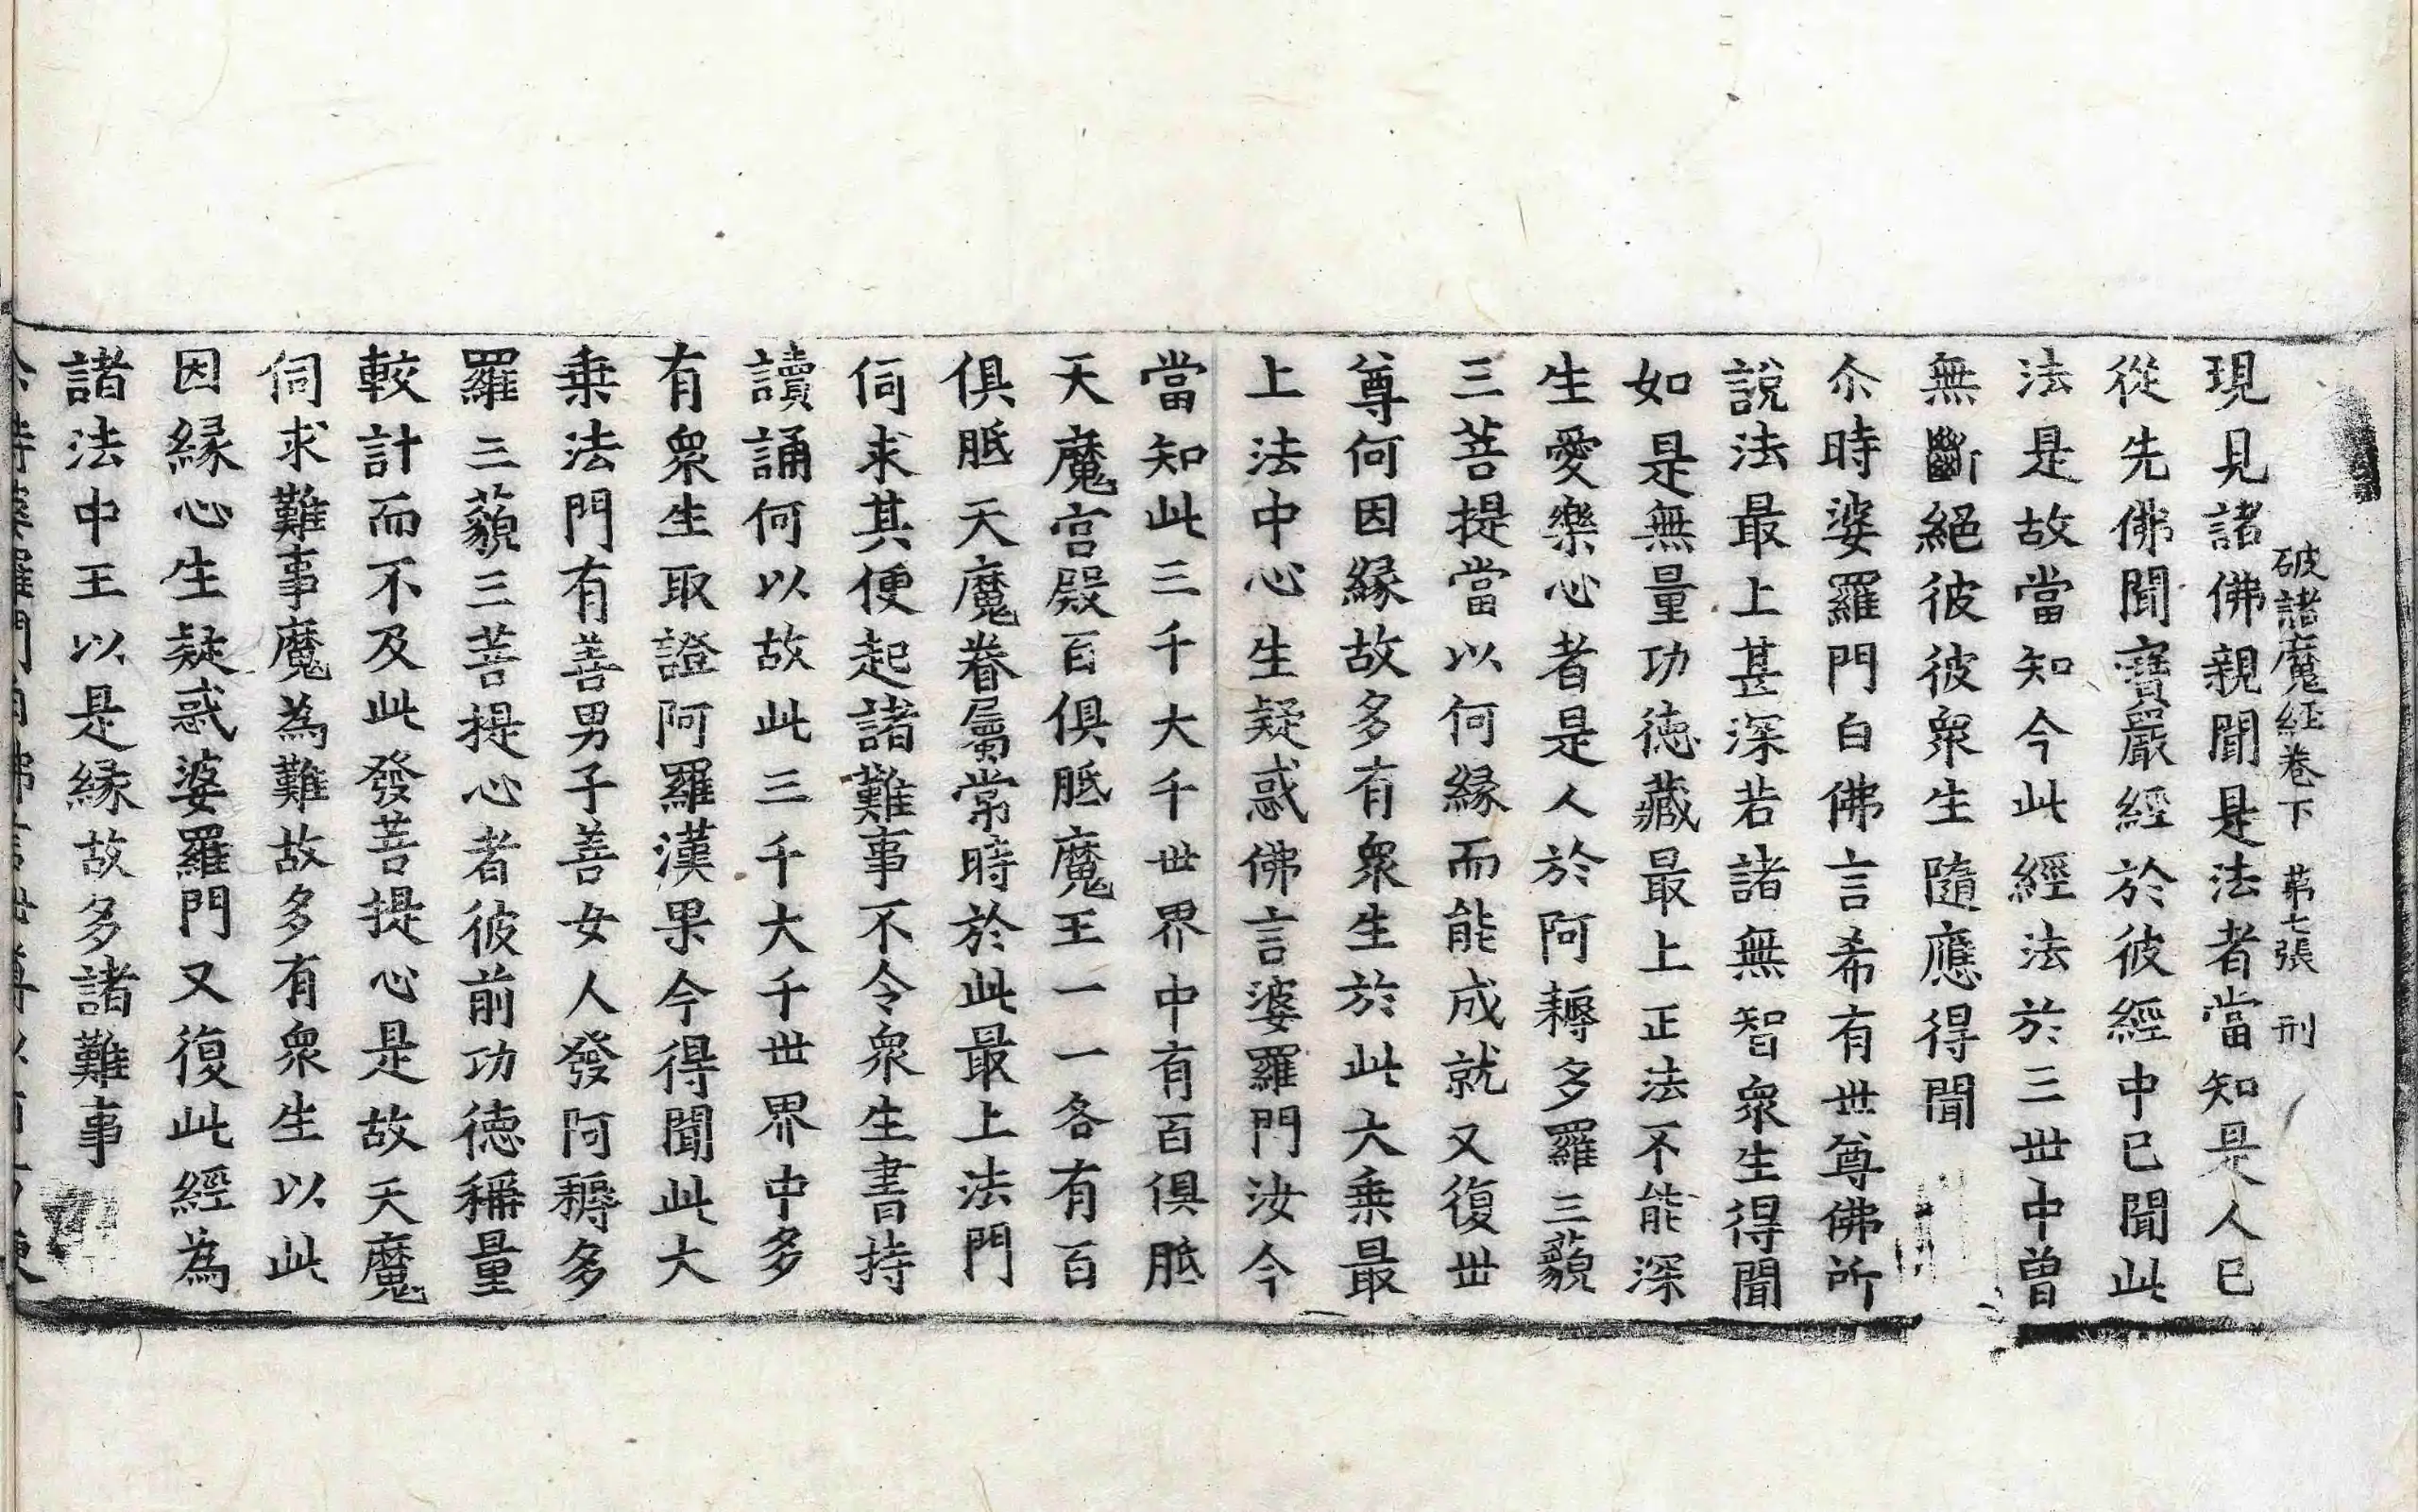 破諸魔経卷下 第七張 刑
現見諸佛親聞是法者當知是人已
從先佛聞寶嚴經於彼經中已聞此
法是故當知今此經法於三世中曾
無斷絕彼彼衆生隨應得聞
尒時婆羅門白佛言希有世尊佛所
說法最上甚深若諸無智衆生得聞
如是無量功徳藏最上正法不能深
生愛樂心者是人於阿耨多羅三藐
三菩提當以何縁而能成就又復世
尊何因縁故多有衆生於此大乗最
上法中心生疑惑佛言婆羅門汝今
當知此三千大千世界中有百俱胝
天魔宫殿百俱胝魔王一一各有百
俱胝天魔眷屬常時於此最上法門
伺求其便起諸難事不令衆生書持
讀誦何以故此三千大千世界中多
有衆生取證阿羅漢果今得聞此大
乗法門有善男子善女人發阿耨多
羅三藐三菩提心者彼前功徳稱量
較計而不及此發菩提心是故天魔
伺求難事魔為難故多有衆生以此
因縁心生疑惑婆羅門又復此經為
諸法中王以是縁故多諸難事